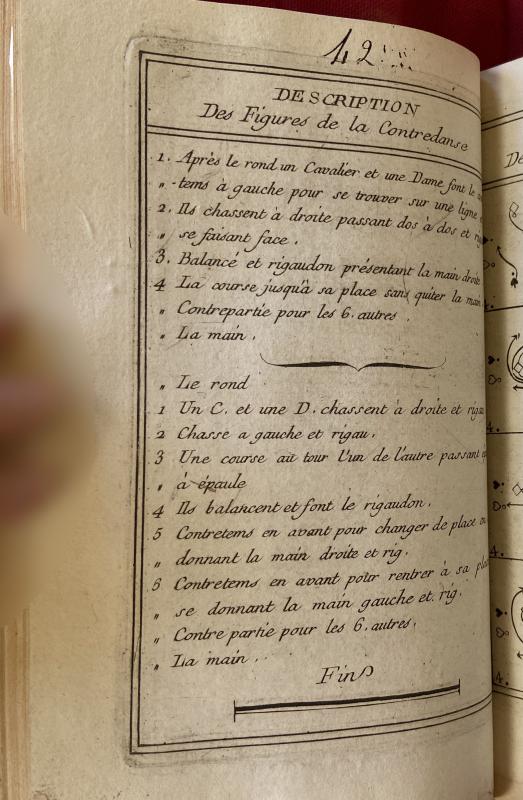 42
DESCRIPTION
Des Figures de la Contredanse
1. Après le rond un Cavalier et une Dame font le
„ tems à gauche pour se trouver sur une ligne
2. Ils chassent à droite passant dos à dos et rig
„ se faisant face.
3. Balancé et rigaudon présentant la main droite
4 La course jusqu'à sa place sans quiter la main
„ Contrepartie pour les 6. autres
„ La main.
„ Le rond
1 Un C. et une D. chassent à droite et rigau
2 Chasse a gauche et rigau.
3 Une course au tour l'un de l'autre passant
„ à épaule
4 Ils balancent et font le rigaudon.
5 Contretems en avant pour changer de place
„ donnant la main droite et rig.
6 Contretems en avant pour rentrer à sa place
„ se donnant la main gauche et rig.
„ Contre partie pour les 6. autres.
„ La main.
Fin